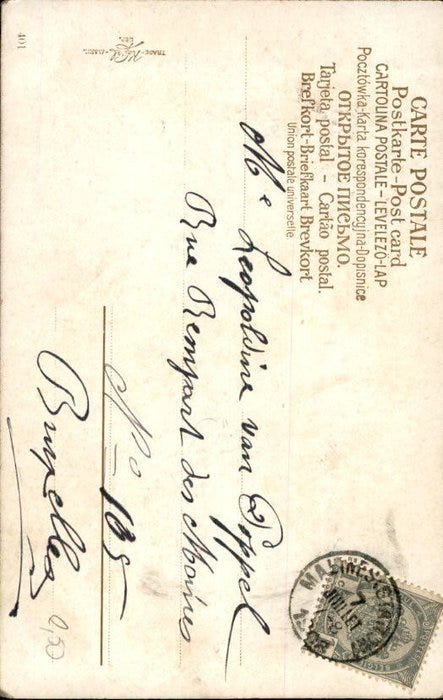 CARTE POSTALE
Postkarte-Post card
CARTOLINA POSTALE-LEVELEZÖ-LAP
Pocztówka-Karta korespondencyjna-Dopisnice
ОТКРЫТОЕ ПИСЬМО.
Tarjeta postal – Cartão postal.
Brefkort-Briefkaart Brevkort
Union postale universelle
Me Leopoldine van Poppel
Rue Rempart des Moines
No 105
Bruxelles
2,50
401
TRADE MARK
MALINES
7
JUILLET